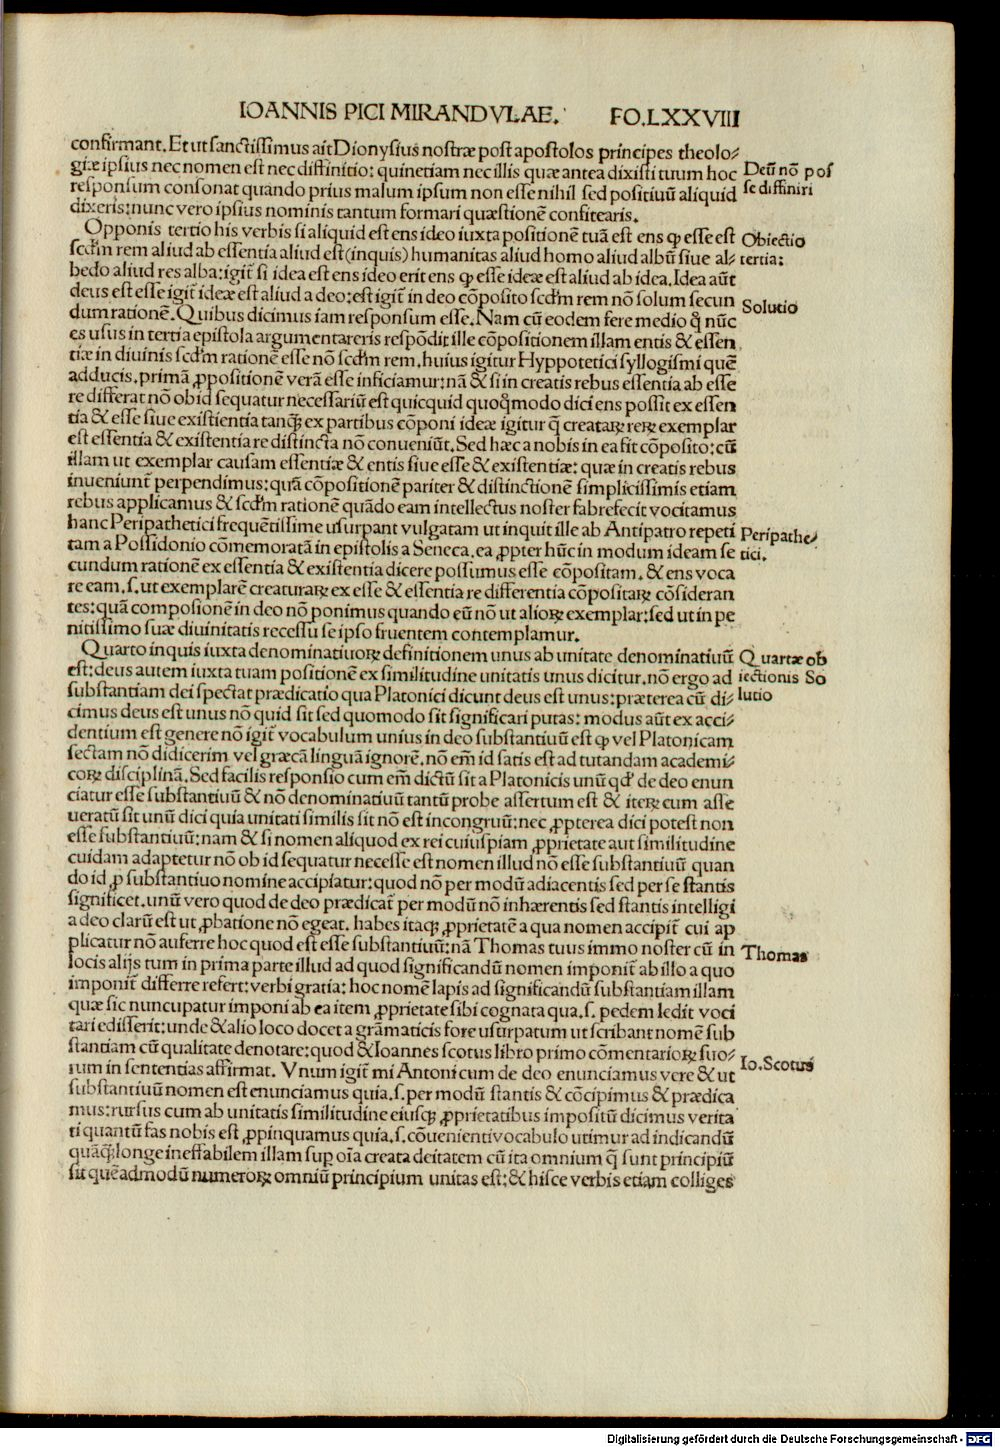 IOANNIS PICI MIRANDVLAE. FO.LXXVIII
confirmant. Et ut sanctissimus ait Dionysius nostræ post apostolos principes theolo-
giæ ipsius nec nomen est nec diffinitio: quinetiam nec illis quæ antea dixisti tuum hoc
responsum consonat quando prius malum ipsum non esse nihil sed positiuũ aliquid
dixeris: nunc vero ipsius nominis tantum formari quæstionẽ confitearis.
Deũ nõ pos
se diffiniri
Opponis tertio his verbis si aliquid est ens ideo iuxta positionẽ tuã est ens ꝙ esse est
scd'm rem aliud ab essentia aliud est (inquis) humanitas aliud homo aliud albũ siue al-
bedo aliud res alba: igit̃ si idea est ens ideo erit ens ꝙ esse ideæ est aliud ab idea. Idea aũt
deus est esse igit̃ ideæ est aliud a deo: est igit̃ in deo cõposito scd'm rem nõ solum secun
dum rationẽ. Quibus dicimus iam responsum esse. Nam cũ eodem fere medio q̃ nũc
es usus in tertia epistola argumentareris respõdit ille cõpositionem illam entis & essen
tiæ in diuinis scd'm rationẽ esse nõ scd'm rem. huius igitur Hyppotetici syllogismi quẽ
adducis. primã ꝓpositionẽ verã esse inficiamur: nã & si in creatis rebus essentia ab esse
re differat nõ ob id sequatur necessariũ est quicquid quoq̃modo dici ens possit ex essen
tia & esse siue existientia tanq̃ ex partibus cõponi ideæ igitur q̃ creataꝝ reꝝ exemplar
est essentia & existentia re distincta nõ conueniũt. Sed hæc a nobis in ea fit cõposito: cũ
illam ut exemplar causam essentiæ & entis siue esse & existentiæ: quæ in creatis rebus
inueniunt̃ perpendimus: quã cõpositionẽ pariter & distinctionẽ simplicissimis etiam
rebus applicamus & scd'm rationẽ quãdo eam intellectus noster fabrefecit vocitamus
hanc Peripathetici frequẽtissime usurpant vulgatam ut inquit ille ab Antipatro repeti
tam a Possidonio cõmemoratã in epistolis a Seneca. ea ꝓpter hũc in modum ideam se
cundum rationẽ ex essentia & existentia dicere possumus esse cõpositam. & ens voca
re eam. s. ut exemplarẽ creaturaꝝ ex esse & essentia re differentia cõpositaꝝ cõsideran
tes: quã composionẽ in deo nõ ponimus quando eũ nõ ut alioꝝ exemplar: sed ut in pe
nitissimo suæ diuinitatis recessu se ipso fruentem contemplamur.
Obiectio
tertia:
Solutio
Peripathe-
tici.
Quarto inquis iuxta denominatiuoꝝ definitionem unus ab unitate denominatiuũ
est: deus autem iuxta tuam positionẽ ex similitudine unitatis unus dicitur. nõ ergo ad
substantiam dei spectat prædicatio qua Platonici dicunt deus est unus: præterea cũ di-
cimus deus est unus nõ quid sit sed quomodo sit significari putas: modus aũt ex acci-
dentium est genere nõ igit̃ vocabulum unius in deo substantiuũ est ꝙ vel Platonicam
sectam nõ didicerim vel græcã linguã ignorẽ. nõ em̃ id satis est ad tutandam academi-
coꝝ disciplinã. Sed facilis responsio cum em̃ dictũ sit a Platonicis unũ qd' de deo enun
ciatur esse substantiuũ & nõ denominatiuũ tantũ probe assertum est & iteꝝ cum asse
ueratũ sit unũ dici quia unitati similis sit nõ est incongruũ: nec ꝓpterea dici potest non
esse substantiuũ: nam & si nomen aliquod ex rei cuiuspiam ꝓprietate aut similitudine
cuidam adaptetur nõ ob id sequatur necesse est nomen illud nõ esse substantiuũ quan
do id ꝓ substantiuo nomine accipiatur: quod nõ per modũ adiacentis sed per se stantis
significet. unũ vero quod de deo prædicat̃ per modũ nõ inhærentis sed stantis intelligi
a deo clarũ est ut ꝓbatione nõ egeat. habes itaq; ꝓprietatẽ a qua nomen accipit̃ cui ap
plicatur nõ auferre hoc quod est esse substantiuũ: nã Thomas tuus immo noster cũ in
locis alijs tum in prima parte illud ad quod significandũ nomen imponit̃ ab illo a quo
imponit̃ differre refert: verbi gratia: hoc nomẽ lapis ad significandũ substantiam illam
quæ sic nuncupatur imponi ab ea item ꝓprietate sibi cognata qua. s. pedem ledit voci
tari edisserit: unde & alio loco docet a grãmaticis fore usurpatum ut scribant nomẽ sub
stantiam cũ qualitate denotare: quod & Ioannes scotus libro primo cõmentarioꝝ suo-
rum in sententias affirmat. Vnum igit̃ mi Antoni cum de deo enunciamus vere & ut
substantiuũ nomen est enunciamus quia. s. per modũ stantis & cõcipimus & prædica
mus: rursus cum ab unitatis similitudine eiusq; ꝓprietatibus impositũ dicimus verita
ti quantũ fas nobis est ꝓpinquamus quia. s. cõuenienti vocabulo utimur ad indicandũ
quãq̃ longe ineffabilem illam sup oĩa creata deitatem cũ ita omnium q̃ sunt principiũ
sit quẽadmodũ numeroꝝ omniũ principium unitas est: & hisce verbis etiam colliges
Quartæ ob
iectionis So
lutio
Thomas
Io. Scotus
Digitalisierung gefördert durch die Deutsche Forschungsgemeinschaft - DFG